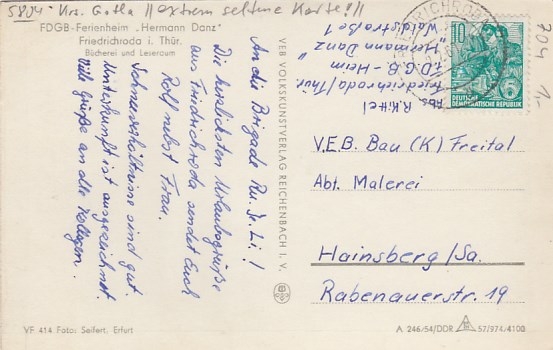 5804 Krs. Gotha || extrem seltene Karte! ||
FDGB-Ferienheim „Hermann Danz"
Friedrichroda i. Thür.
Bücherei und Leseraum
An die Brigade Ru. Ir. Li!
Die herzlichsten Urlaubsgrüße
aus Friedrichroda sendet Euch
Rolf nebst Frau.
Schneeverhältnisse sind gut.
Unterkunft ist ausgezeichnet
Viele Grüße an alle Kollegen.
VF 414 Foto: Seifert, Erfurt
VEB VOLKSKUNSTVERLAG REICHENBACH I. V.
Abs R. Kittel
Friedrichroda/Thür.
F.D.G.B-Heim
"Hermann Danz"
Waldstraße 1
10
DEUTSCHE
DEMOKRATISCHE REPUBLIK
704
1,-
V.E.B. Bau (K) Freital
Abt. Malerei
Hainsberg/Sa.
Rabenauerstr. 19
A 246/54/DDR 57/974/4100